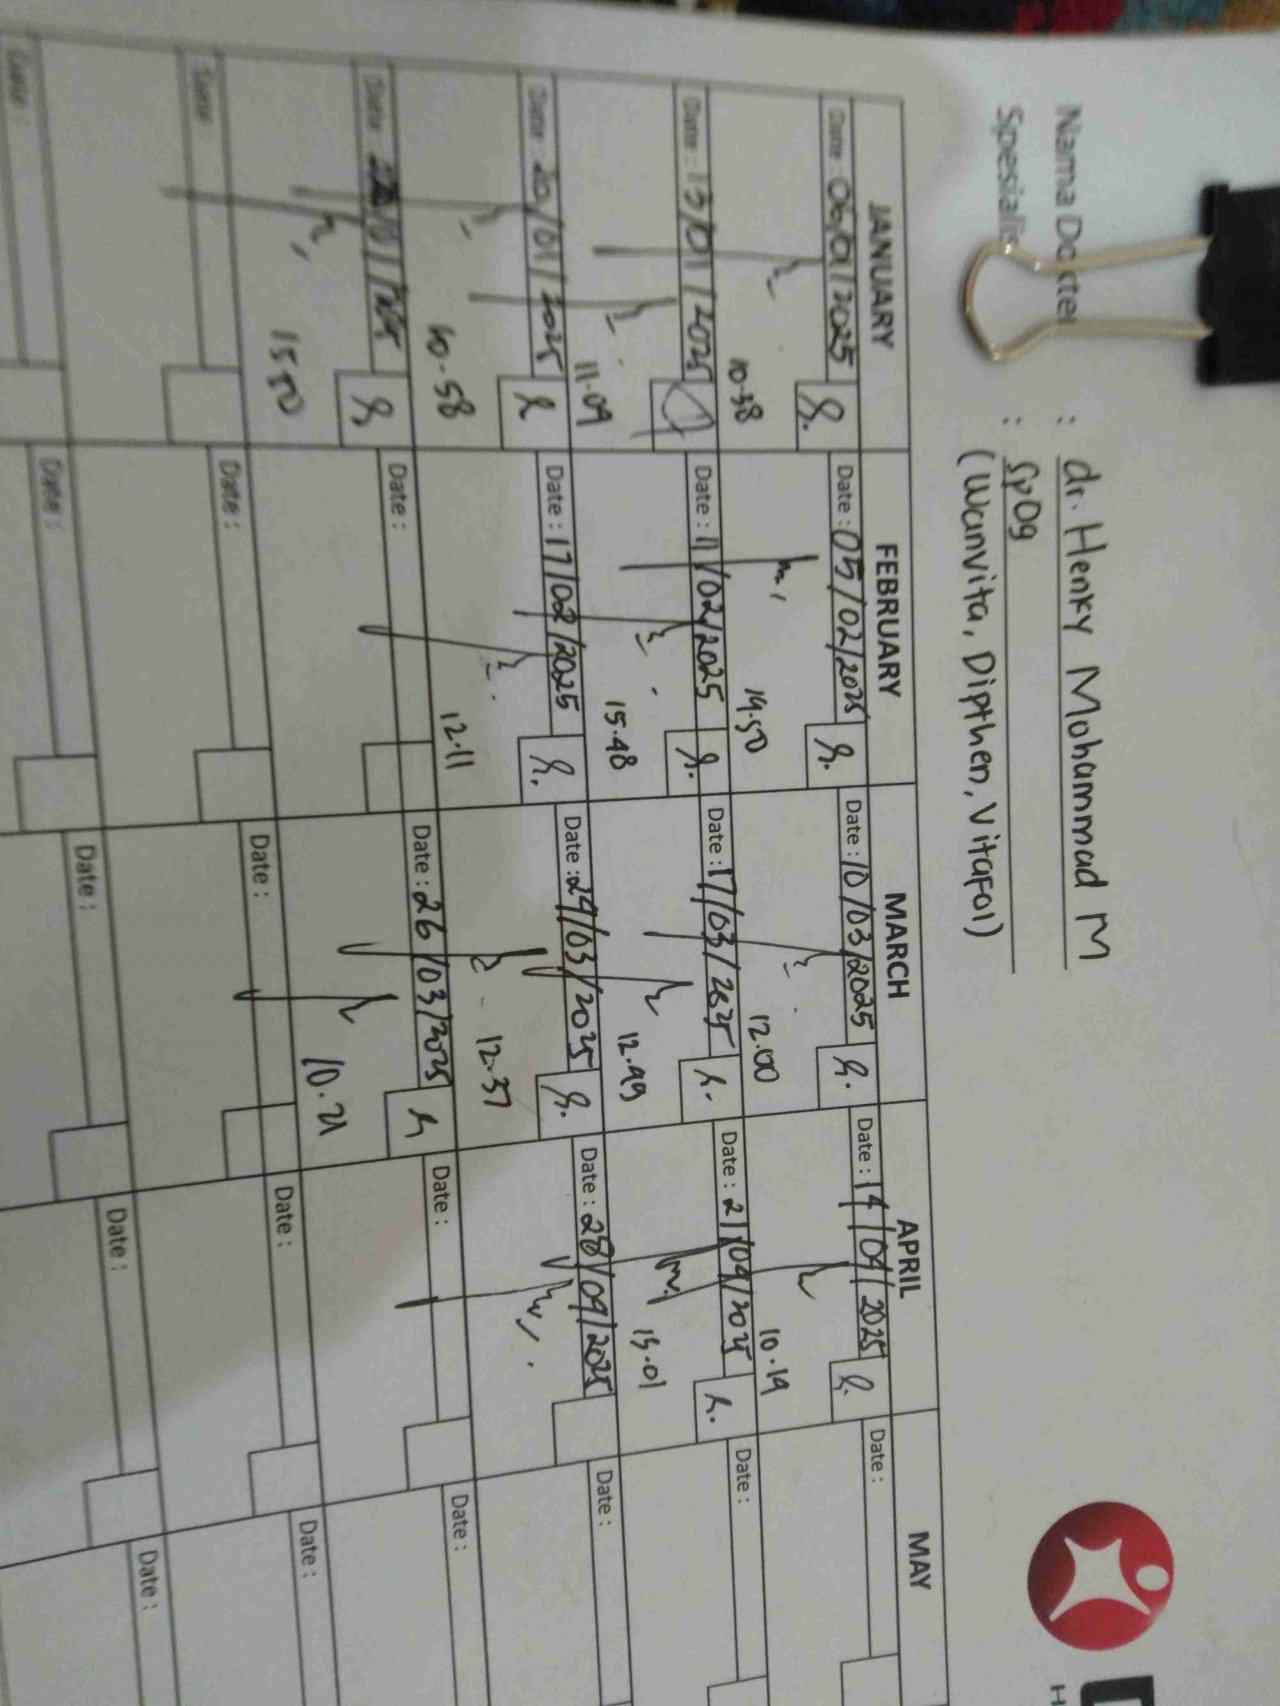 Nama Dokter : dr. Henky Mohammad M
Spesialis : SpOG
(Wanvita, Dipthen, Vitafol)
JANUARY FEBRUARY MARCH APRIL MAY
Date : 06/01/2025 Date : 05/02/2025 Date : 10/03/2025 Date : 14/04/2025 Date :
10.38 14.50 12.00 10.19
Date : 13/01/2025 Date : 11/02/2025 Date : 17/03/2025 Date : 21/04/2025 Date :
11.09 15.48 12.49 15.01
Date : 20/01/2025 Date : 17/02/2025 Date : 24/03/2025 Date : 28/04/2025 Date :
10.58 12.11 12.37
Date : Date : Date : 26/03/2025 Date : Date :
15.50 10.21
Date : Date : Date : Date : Date :
Date : Date : Date : Date : Date :